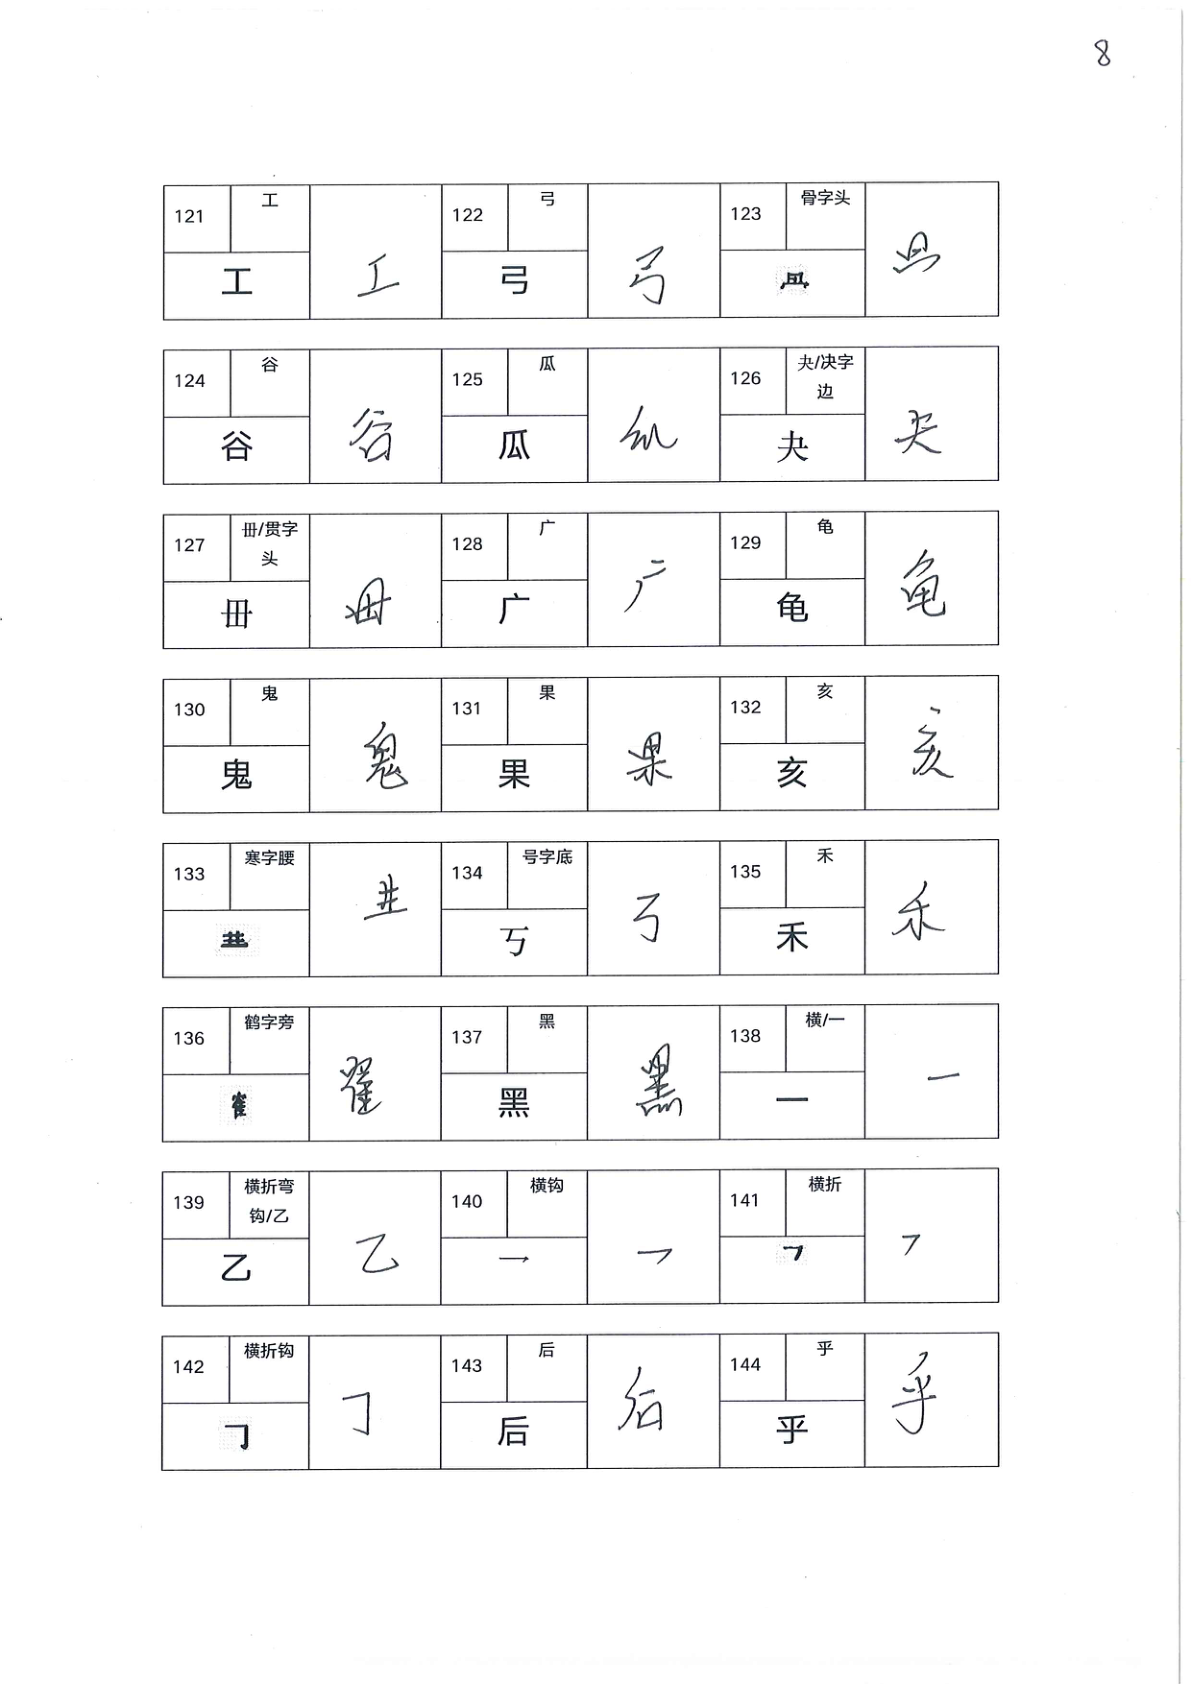 8
121 工 工 工 122 弓 弓 弓 123 骨字头
124 谷 谷 谷 125 瓜 瓜 瓜 126 夬/决字边 夬 夬
127 毌/贯字头 毌 毌 128 广 广 广 129 龟 龟 龟
130 鬼 鬼 鬼 131 果 果 果 132 亥 亥 亥
133 寒字腰 134 号字底 丂 丂 135 禾 禾 禾
136 鹤字旁 137 黑 黑 黑 138 横/一 一 一
139 横折弯钩/乙 乙 乙 140 横钩 乛 乛 141 横折
142 横折钩 𠃌 𠃌 143 后 后 后 144 乎 乎 乎